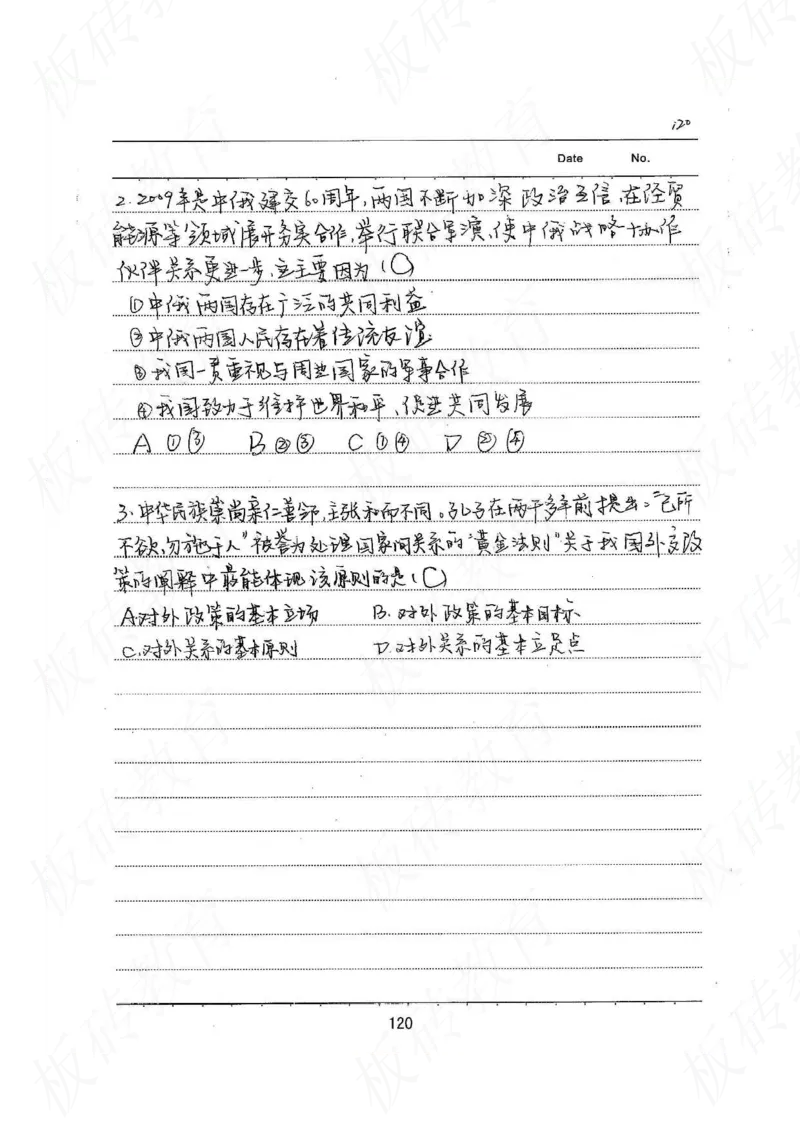 120
Date No.
2.2009年是中俄建交60周年,两国不断加深政治互信,在经贸
能源等领域展开务实合作,举行联合军演,使中俄战略协作
伙伴关系更进一步,这主要因为(C)
①中俄两国存在广泛的共同利益
②中俄两国人民存在着传统友谊
③我国一贯重视与周边国家的军事合作
④我国致力于维护世界和平、促进共同发展
A ①③ B ②③ C ①④ D ②④
3.中华民族崇尚亲仁善邻,主张和而不同。孔子在两千多年前提出:"己所
不欲,勿施于人"被誉为处理国家间关系的"黄金法则"关于我国外交政
策的阐释中最能体现该原则的是(C)
A.对外政策的基本立场 B.对外政策的基本目标
C.对外关系的基本原则 D.对外关系的基本立足点
120
板砖教育